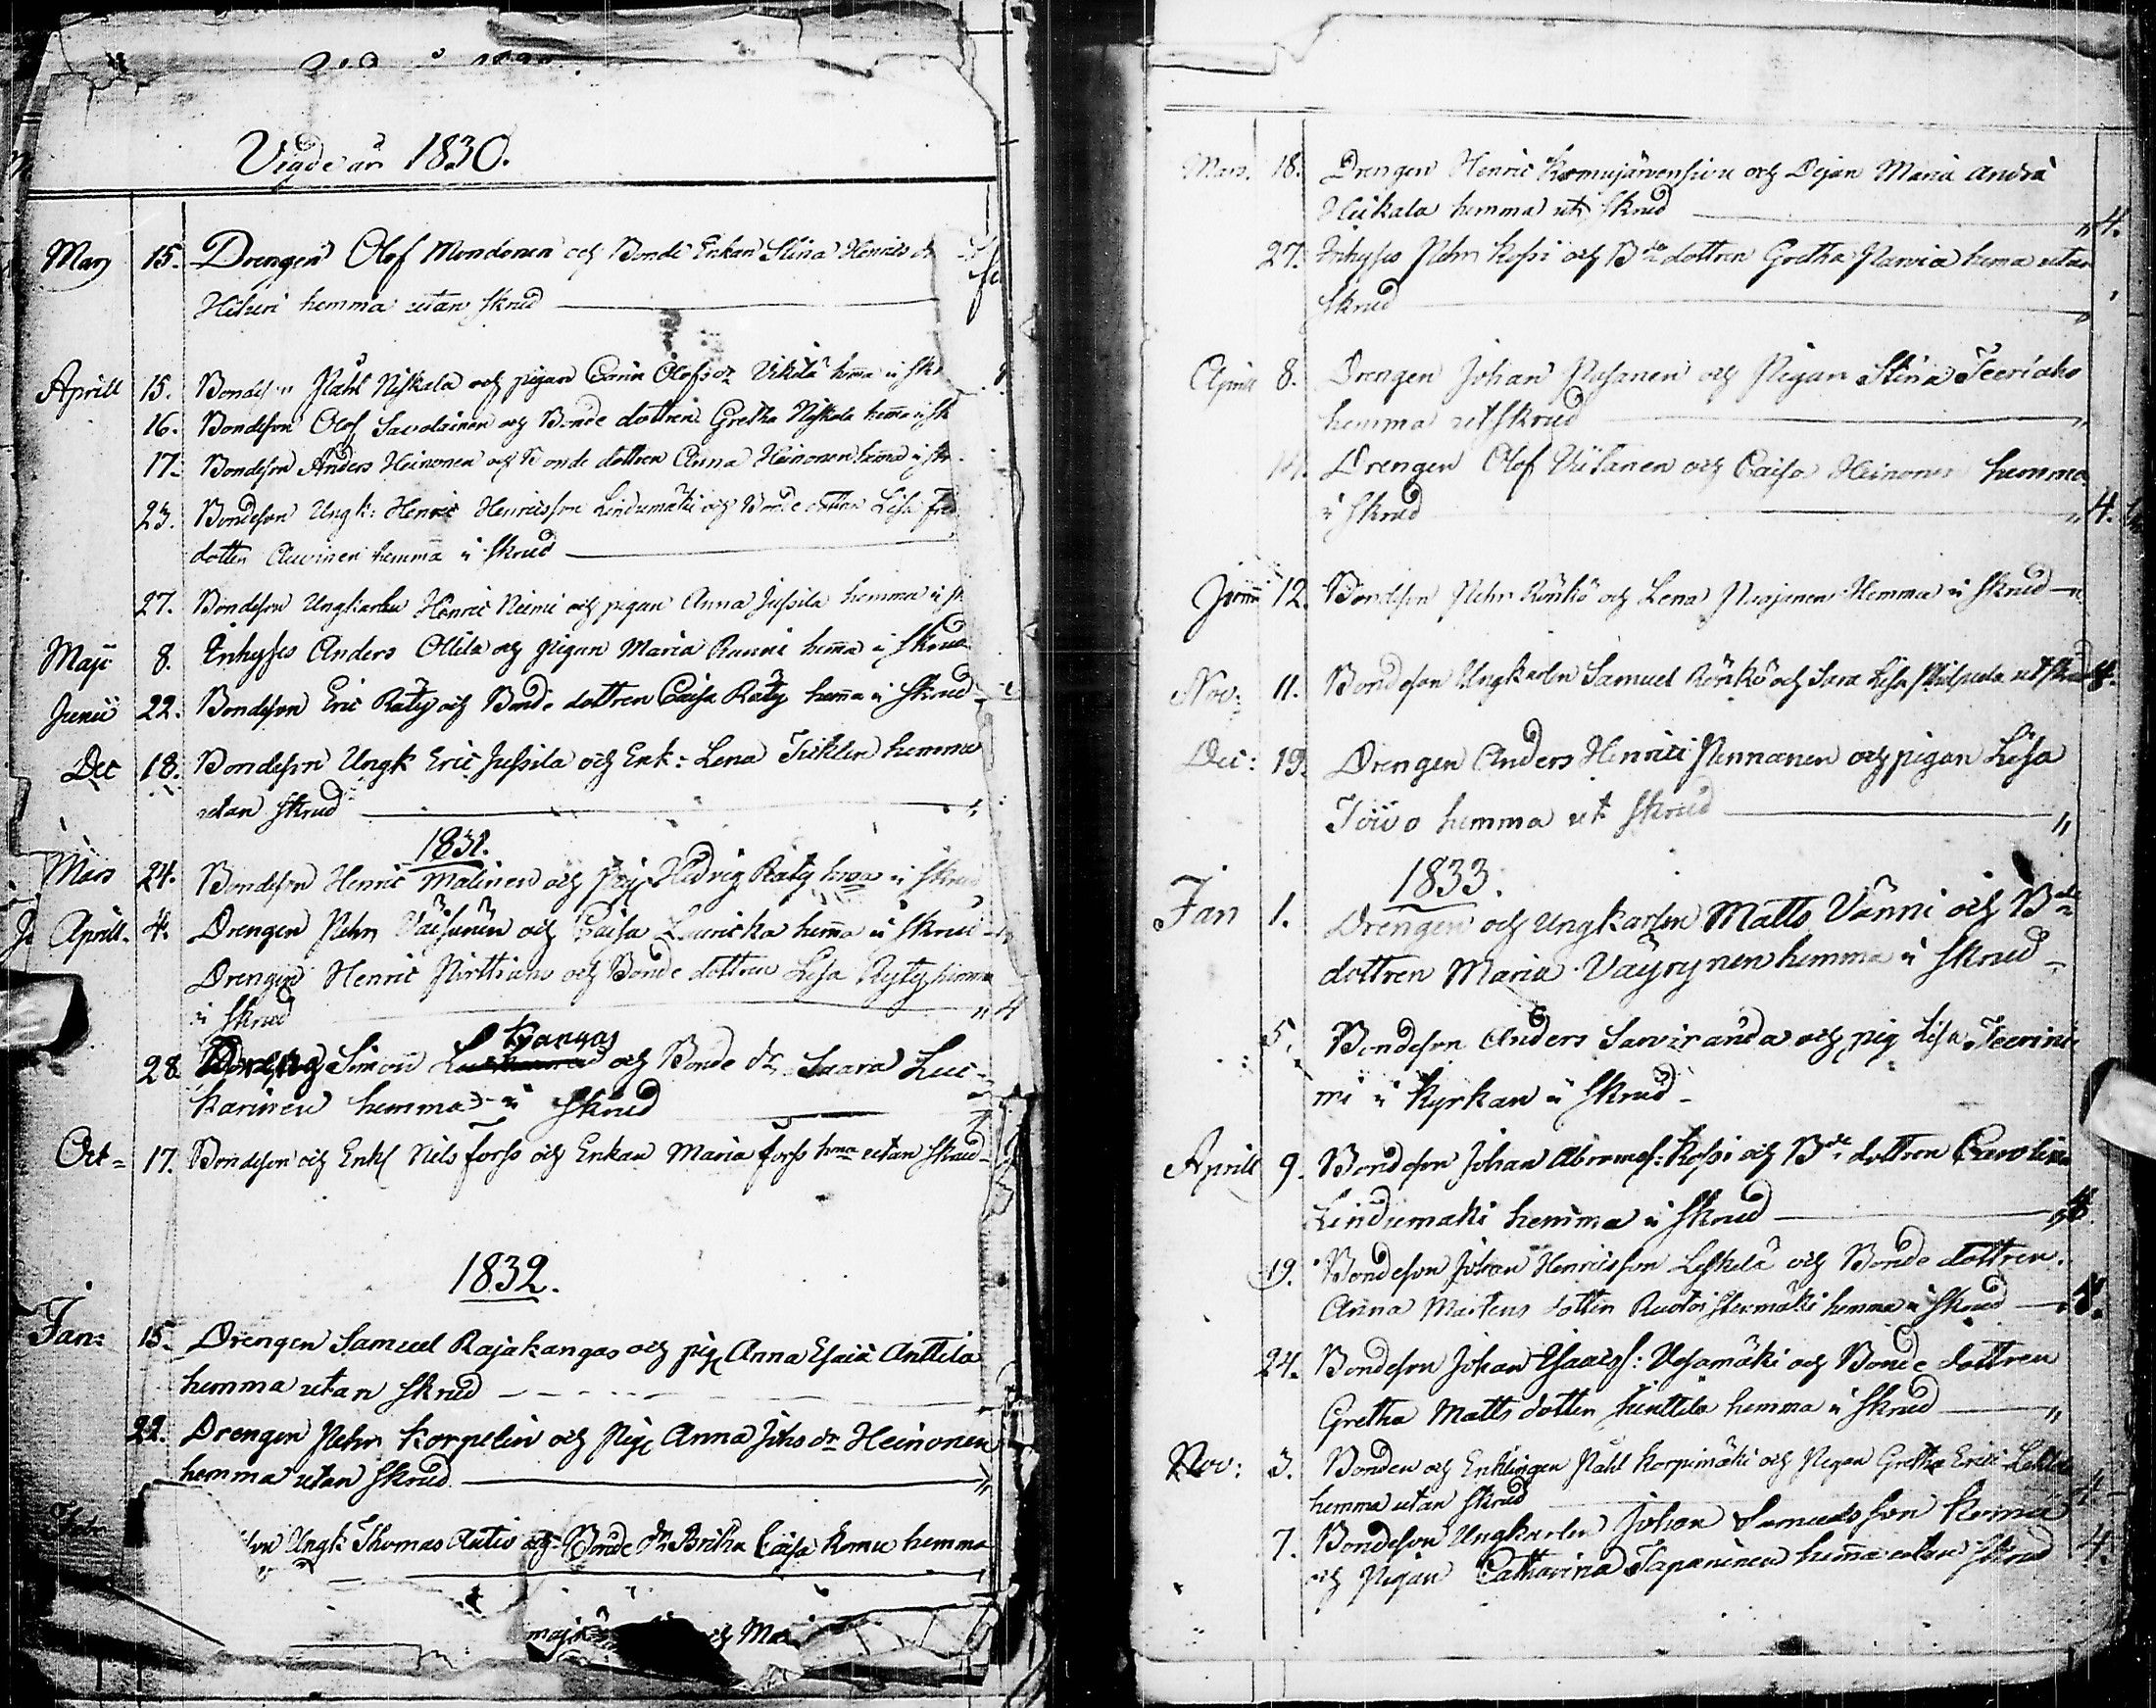 Vigde år 1830.
Mars 15. Drengen Olof Mondonen och Bonde Enkan Stina Henrics dr
hemma utan skrud
Aprill 15. Bondeson Påhl Niskala och pigan Carin Olofsdr hema i sk
16. Bondeson Olof Savolainen och Bonde dottren Gretha Niskala hema i sk
17. Bondeson Anders Heinonen och Bonde dottren Anna Heinonen hema i skr
23. Bondeson Ungk: Henric Henricsson Lindumäki och Bonde dottren Lisa
dotter Auvinen hemma i skrud
27. Bondeson Ungkarlen Henric Niemi och pigan Anna Jussila hemma i s
Maji 8. Inhyses Anders Ollila och pigan Maria hema i skrud
Junii 22. Bondeson Eric Räty och Bonde dottren Caisa Räty hema i skrud
Dec 18. Bondeson Ungk Eric Jussila och Enk: Lena hemma
utan skrud
1831.
Mars 24. Bondeson Henric Malinen och Pig Hedvig Räty hema i skrud
Aprill 4. Drengen Pehr Väisänen och Caisa hema i skrud
Drengen Henric Pirttiaho och Bonde dottren Lisa hemma
i skrud 4
Kyangas
28. Simon och Bonde dr Saara Luc-
karinen hemma i skrud
Oct 17. Bondeson och Enkl Nils Forss och Enkan Maria Forss hma utan skrud
1832.
Jan: 15. Drengen Samuel Rajakangas och pig Anna Esaiæ Anttila
hemma utan skrud
22. Drengen Pehr Korpelin och Pig Anna Johs dr Heinonen
hemma utan skrud
Ungk Thomas Autio och Bonde dr Britha Caisa Komu hemma
och
Mars. 18. Drengen Henric och Pigan Maria Andræ
Heikala hemma ut skrud 4.
27. Inhyses Pehr Kossi och Bde dottren Gretha hema utan
skrud
Aprill 8. Drengen Johan och Pigan Stina Teeriaho
hemma ut skrud
Drengen Olof Viitanen och Caisa Heinonen hemma
i skrud 4.
Junii 12. Bondeson Pehr Rönkö och Lena Hemma i skrud
Nov: 11. Bondeson Ungkarlen Samuel Rönkö och Sara Lisa ut skrud 4.
Dec: 19. Drengen Anders Henrici Pennanen och pigan Lisa
Toivo hemma ut skrud
1833.
Jan 1. Drengen och Ungkarlen Matts Vänni och Bde
dottren Maria Väyrynen hemma i skrud
5. Bondeson Anders Saviranda och pig Lisa Teerini-
mi i Kyrkan i skrud
Aprill 9. Bondeson Johan Abramss: Kossi och Bde dottren Carolina
Lindumäki hemma i skrud 4.
19. Bondeson Johan Henricsson Leskelä och Bonde dottren
Anna Martens dotter hemma i skrud 4.
24. Bondeson Johan Isaacss: Vesamäki och Bonde dottren
Gretha Matts dotter Hinttila hemma i skrud
Nov: 3. Bonden och Enklingen Påhl Korpimäki och Pigan Gretha Erici
hemma utan skrud
7. Bondeson Ungkarlen Johan Samuelsson Komu
och Pigan Catharina Tapaninen hema utan skrud 4.